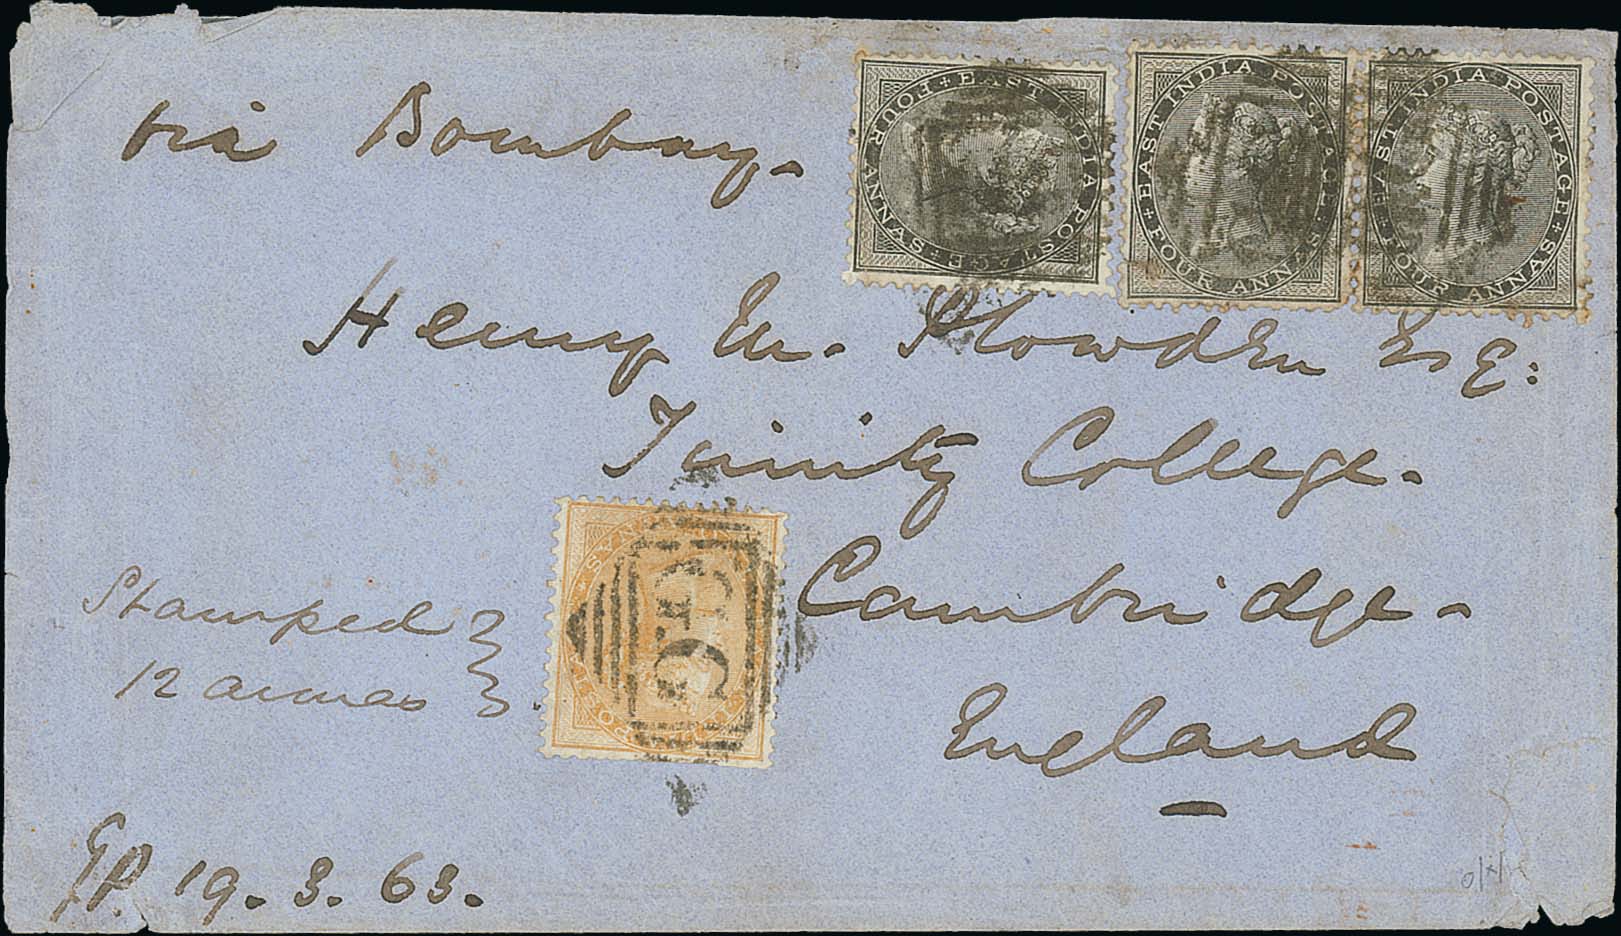 via Bombay.
EAST INDIA POSTAGE
FOUR ANNAS
EAST INDIA POSTAGE
FOUR ANNAS
EAST INDIA POSTAGE
FOUR ANNAS
Henry M. Plowden Esq:
Trinity College.
Cambridge.
England
Stamped
12 annas
19. 3. 63.